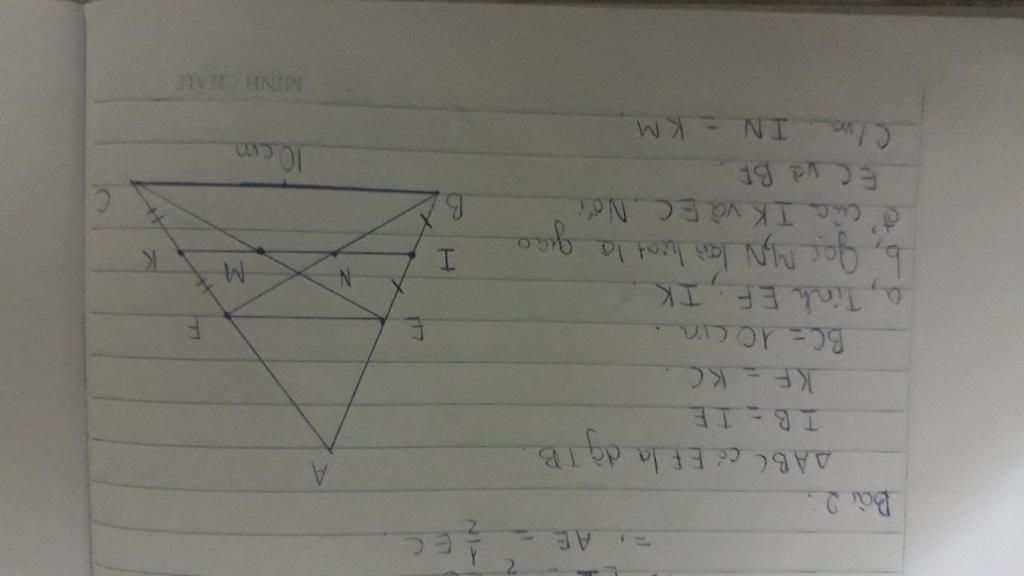 =, AE = 1/2 EC
Bài 2:
ΔABC có EF là đg TB.
IB = IE
KF = KC.
BC = 10 cm.
a, Tính EF, IK.
b, Gọi M,N lần lượt là giao
đ' của IK và EC. Nối
EC và BF.
C/m. IN = KM.
A
E
F
I
N
M
K
B
C
10 cm
MINH CHAU